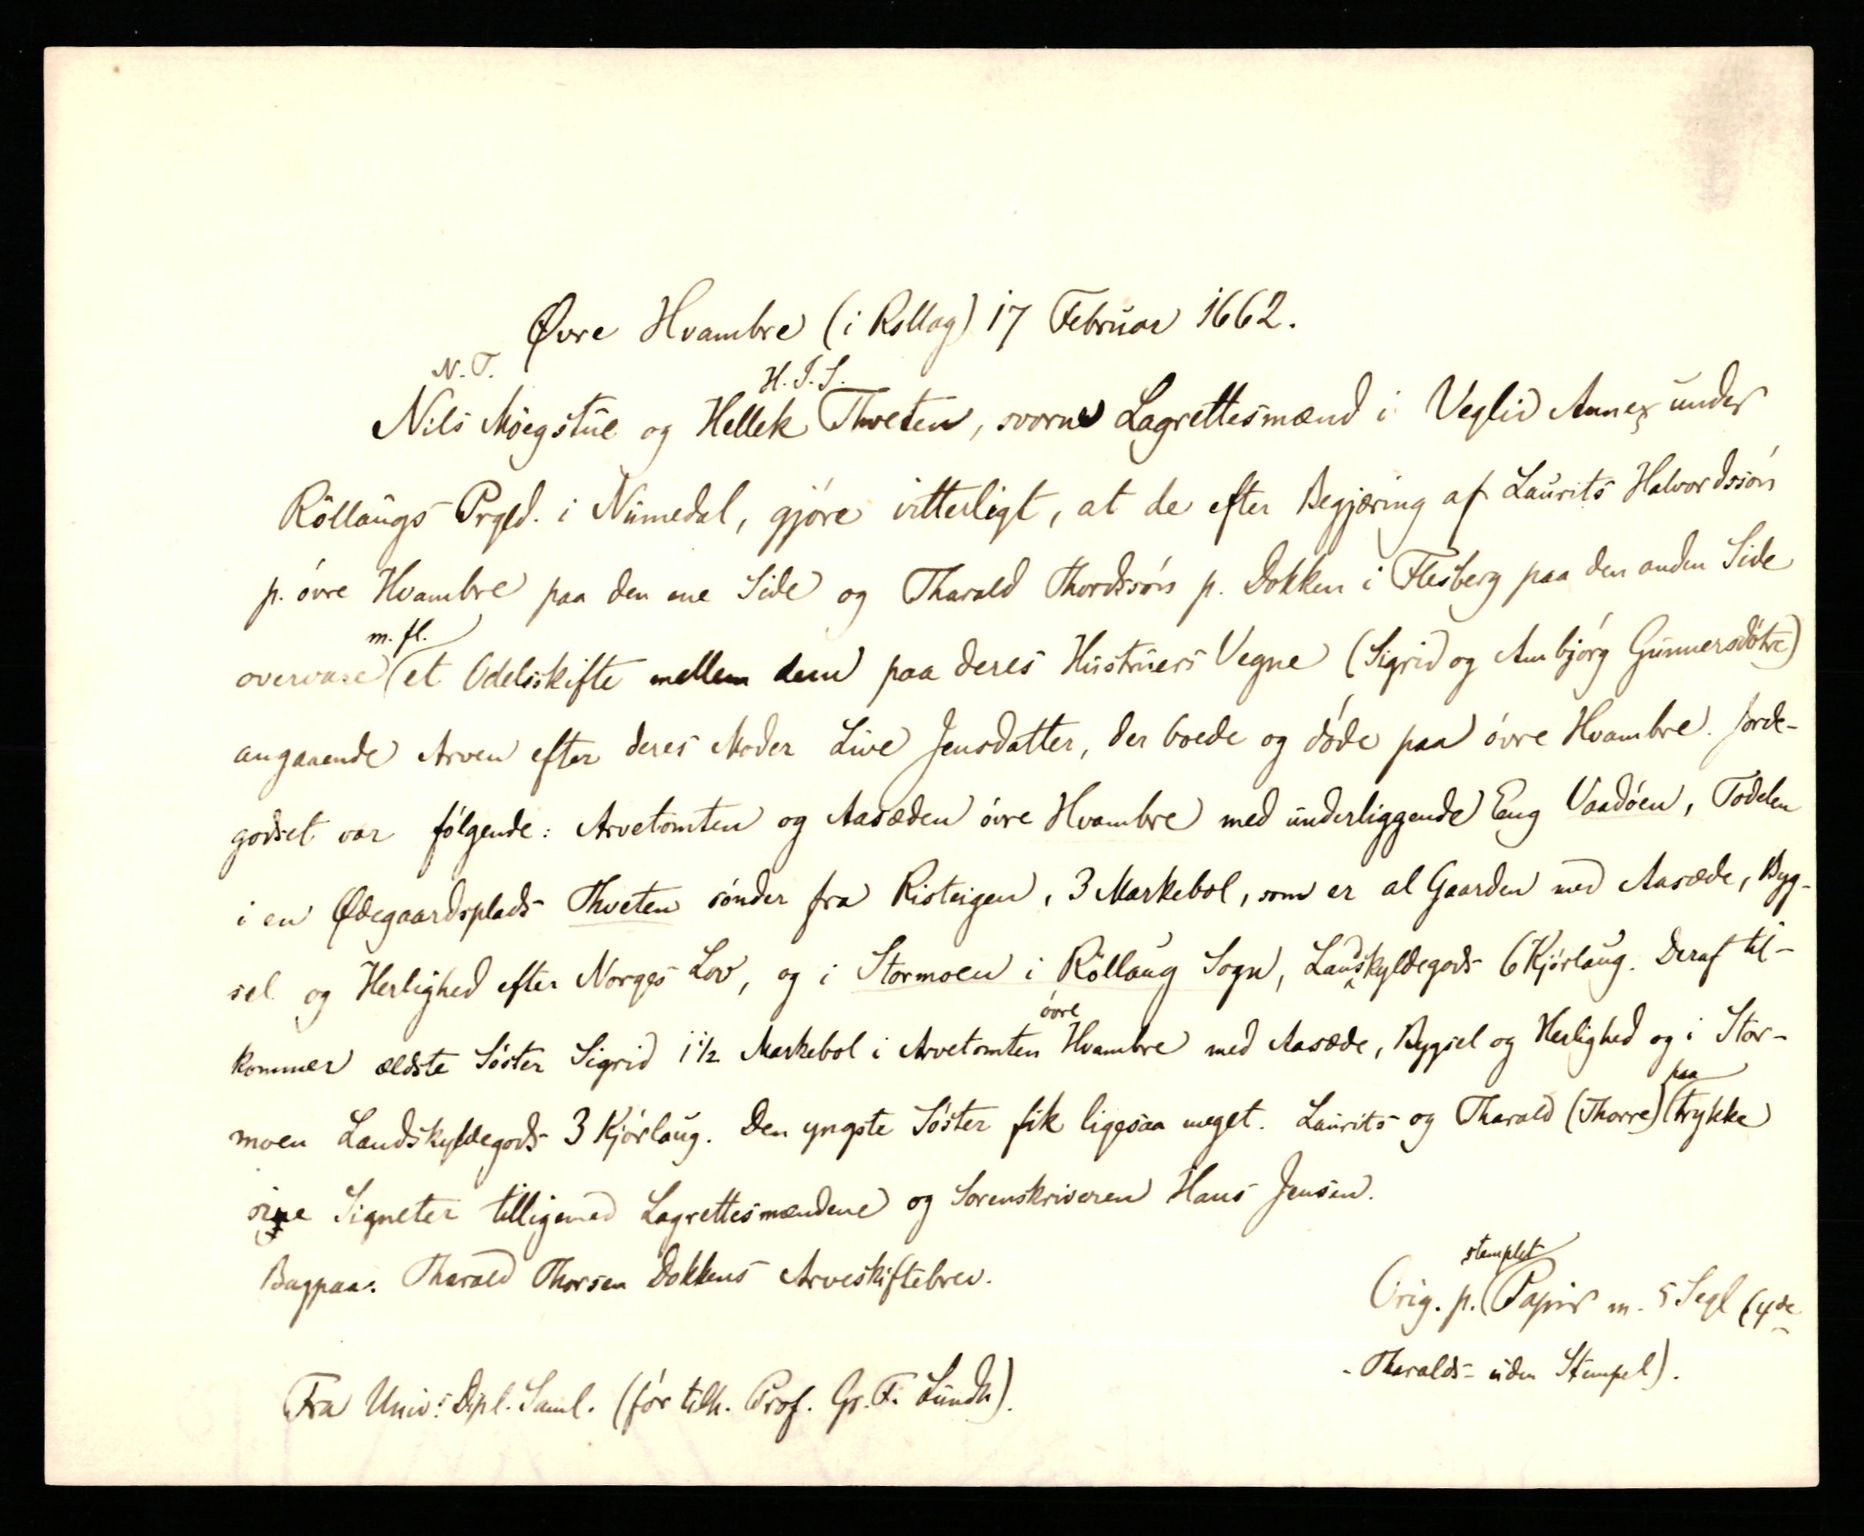 Øvre Hvambre (i Rollag) 17 Februar 1662.
N. T. H. I. S.
Nils Möegstue og Hellek Thveten, svorne Lagrettesmænd i Veglid Annex under
Röllaugs Prgld. i Numedal, gjöre vitterligt, at de efter Begjæring af Laurits Halvordssön
p. övre Hvambre paa den ene Side og Tharald Thordssön p. Dokken i Flesberg paa den anden Side
m. fl.
overvare et Odelsskifte mellem dem paa deres Hustruers Vegne (Sigrid og Anbjörg Gunnersdötre)
angaaende Arven efter deres Moder Live Jensdatter, der boede og döde paa övre Hvambre. Jorde-
godset var fölgende: Arvetomten og Aasæden övre Hvambre med underliggende Eng Vaadöen, Todelen
i en Ødegaardsplads Thveten sönder fra Risteigen, 3 Markebol, som er al Gaarden med Aasæde, Byg-
sel og Herlighed efter Norges Lov, og i Stormoen i Röllaug Sogn, Landskyldegods 6 Kjörlaug. Deraf til-
övre
kommer ældste Söster Sigrid 1 1/2 Markebol i Arvetomten Hvambre med Aasæde, Bygsel og Herlighed og i Stor-
paa
moen Landskyldegods 3 Kjörlaug. Den yngste Söster fik ligesaa meget. Laurits og Tharald (Thorre) trykke
sine Signeter tilligemed Lagrettesmændene og Sorenskriveren Hans Jensen.
Bagpaa: Tharald Thorsen Dokkens Arveskiftebrev.
stemplet
Orig. p. Papir m. 5 Segl (4de
- Tharalds - uden Stempel).
Fra Univ: Dipl. Saml. (för tilh. Prof. Gr. F. Lundh).